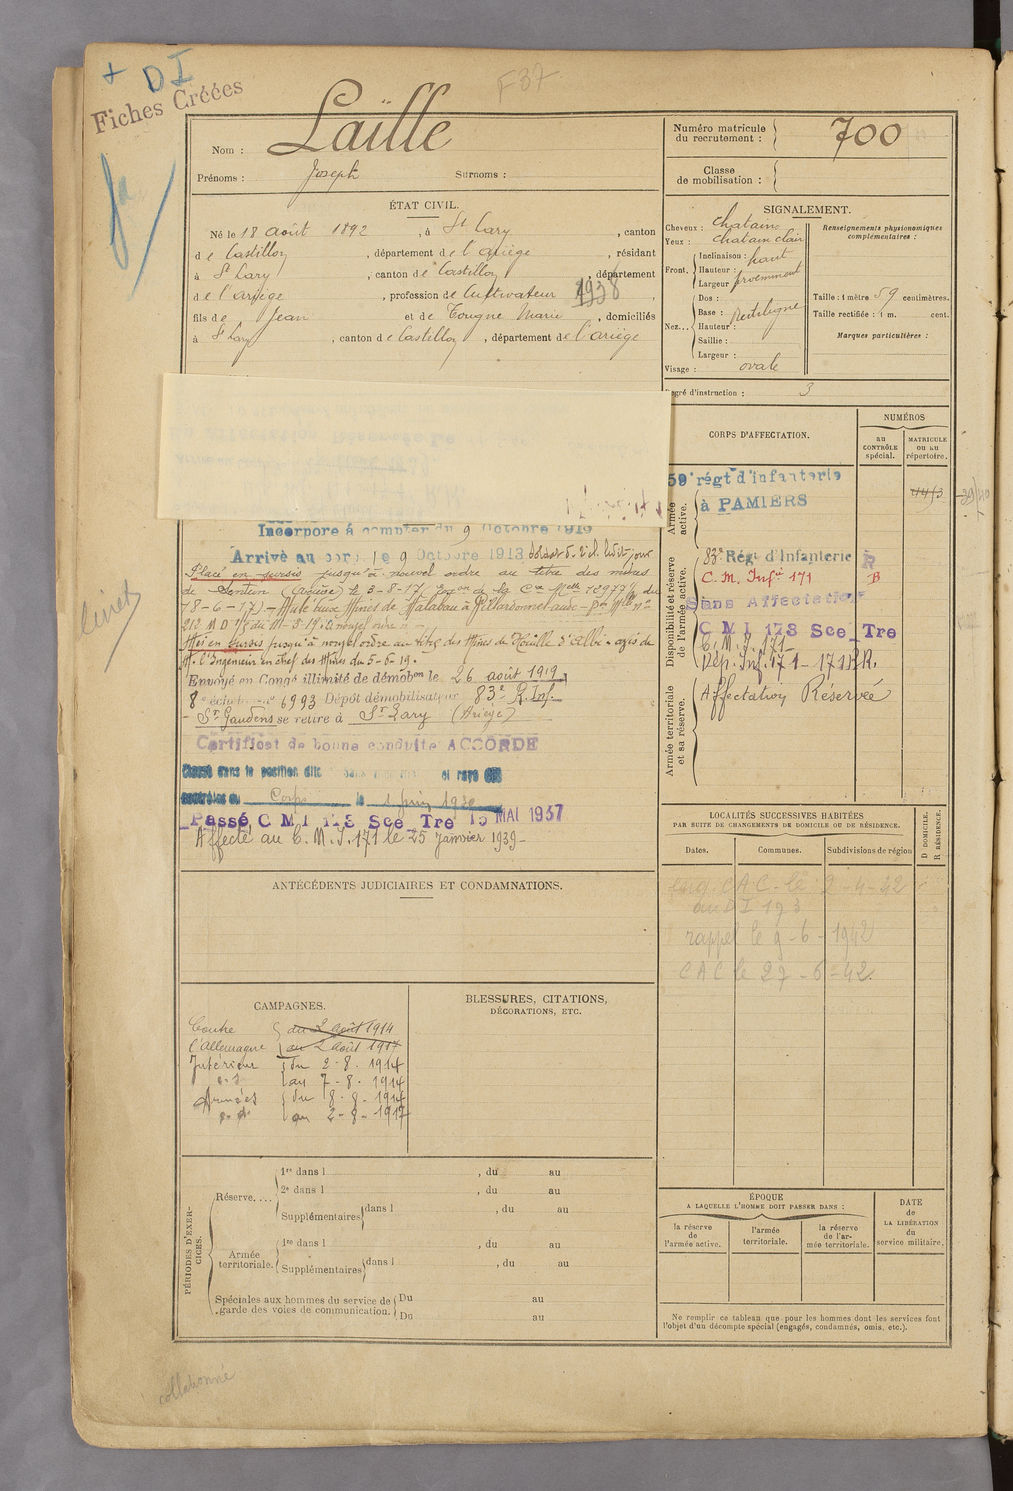 + DI
Fiches Créées
F 37
Nom : Laïlle
Prénoms : Joseph Surnoms :
Numéro matricule du recrutement : 700
Classe de mobilisation :
ÉTAT CIVIL.
Né le 18 août 1892, à St Lary, canton
de Castillon, département de l'Ariège, résidant
à St Lary, canton de Castillon, département
de l'ariège, profession de Cultivateur 1938
fils de Jean et de Tougne Marie, domiciliés
à St Lary, canton de Castillon, département de l'ariège
SIGNALEMENT.
Cheveux : chatains
Yeux : chatain clair
Front. Inclinaison : haut
Hauteur :
Largeur : proeminent
Nez... Dos :
Base : Rectiligne
Hauteur :
Saillie :
Largeur :
Visage : ovale
Renseignements physionomiques complémentaires :
Taille : 1 mètre 59 centimètres.
Taille rectifiée : 1 m. cent.
Marques particulières :
Degré d'instruction : 3
CORPS D'AFFECTATION.
NUMÉROS
au CONTRÔLE spécial.
MATRICULE OU AU répertoire.
Armée active.
59e régt d'infanterie
à PAMIERS
4413
Disponibilité et réserve de l'armée active.
83e Régt d'Infanterie R
C. M. Infie 171 B
Sans Affectation
C M I 178 Sce Tre
C. M. I. 171
Dép. Inf. 171 - 171 R.R.
Armée territoriale et sa réserve.
Affectation Réservée
Incorporé à compter du 9 Octobre 1913
Arrivé au corps le 9 Octobre 1913 soldat de 2e cl. ledit jour
Placé en sursis jusqu'à nouvel ordre au titre des mines
de Sentein (Ariège) le 3-8-17
18-6-17)
Mis en sursis jusqu'à nouvel ordre au titre des Mines de Houille d'Albi
M. l'Ingénieur en chef des Mines du 5-6-19.
Envoyé en Congé illimité de démobon le 26 août 1919
8e échelon no 6993 Dépôt démobilisateur 83e R. Inf.
St Gaudens se retire à St Lary (Ariège)
Certificat de bonne conduite ACCORDÉ
Classé dans la position dite Sans et rayé des
contrôles du Corps le 1 juin 19
Passé C M I 178 Sce Tre 15 MAI 1937
Affecté au C. M. I. 171 le 25 Janvier 1939
livret
ANTÉCÉDENTS JUDICIAIRES ET CONDAMNATIONS.
LOCALITÉS SUCCESSIVES HABITÉES
PAR SUITE DE CHANGEMENTS DE DOMICILE OU DE RÉSIDENCE.
Dates. Communes. Subdivisions de région
D DOMICILE. R RÉSIDENCE.
C A C le 2-4-42
au DI 173
rappel le 9-6-1942
C A C le 27-6-42
CAMPAGNES.
Contre l'Allemagne du 2 août 1914
au 2 août 1917
Intérieur du 2-8-1914
au 7-8-1914
Armées du 8-8-1914
au 2-8-1917
BLESSURES, CITATIONS,
DÉCORATIONS, ETC.
PÉRIODES D'EXERCICES.
Réserve.... 1re dans l , du au
2e dans l , du au
Supplémentaires dans l , du au
Armée territoriale. 1re dans l , du au
Supplémentaires dans l , du au
Spéciales aux hommes du service de garde des voies de communication. Du au
Du au
ÉPOQUE
A LAQUELLE L'HOMME DOIT PASSER DANS :
la réserve de l'armée active.
l'armée territoriale.
la réserve de l'armée territoriale.
DATE de LA LIBÉRATION du service militaire.
Ne remplir ce tableau que pour les hommes dont les services font
l'objet d'un décompte spécial (engagés, condamnés, omis, etc.).
collationné